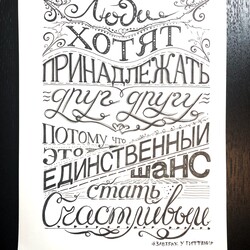 Люди
ХОТЯТ
ПРИНАДЛЕЖАТЬ
друг другу
ПОТОМУ что
ЭТО
ЕДИНСТВЕННЫЙ
шанс
стать
Счастливым
#ЗАВТРАК У ТИФФАНИ